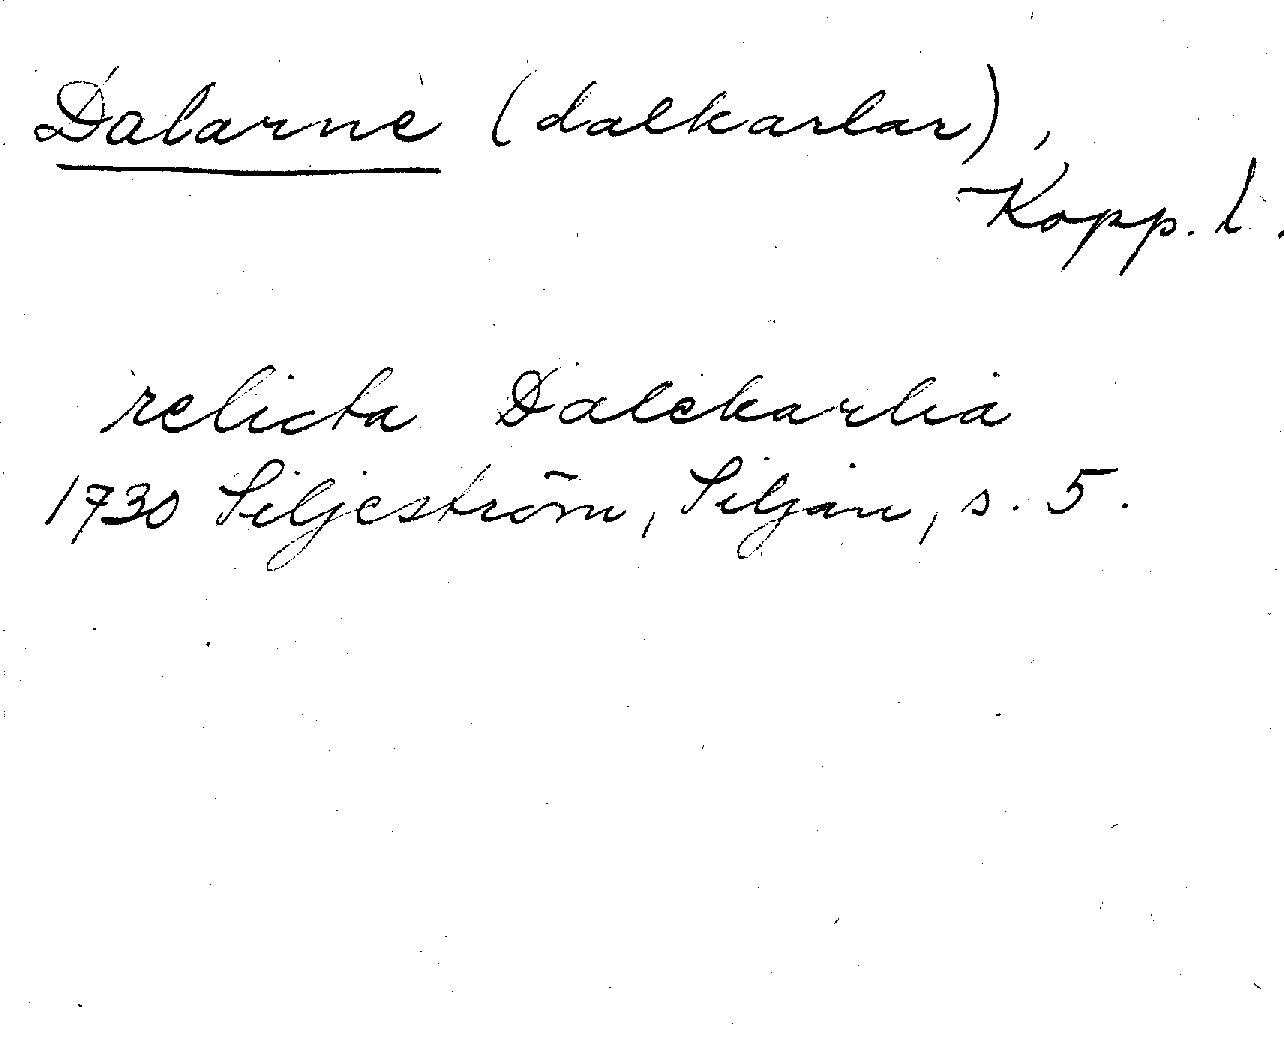 Dalarne (dalkarlar),
Kopp. l.
relicta Dalekarlia
1730 Siljeström, Siljan, s. 5.